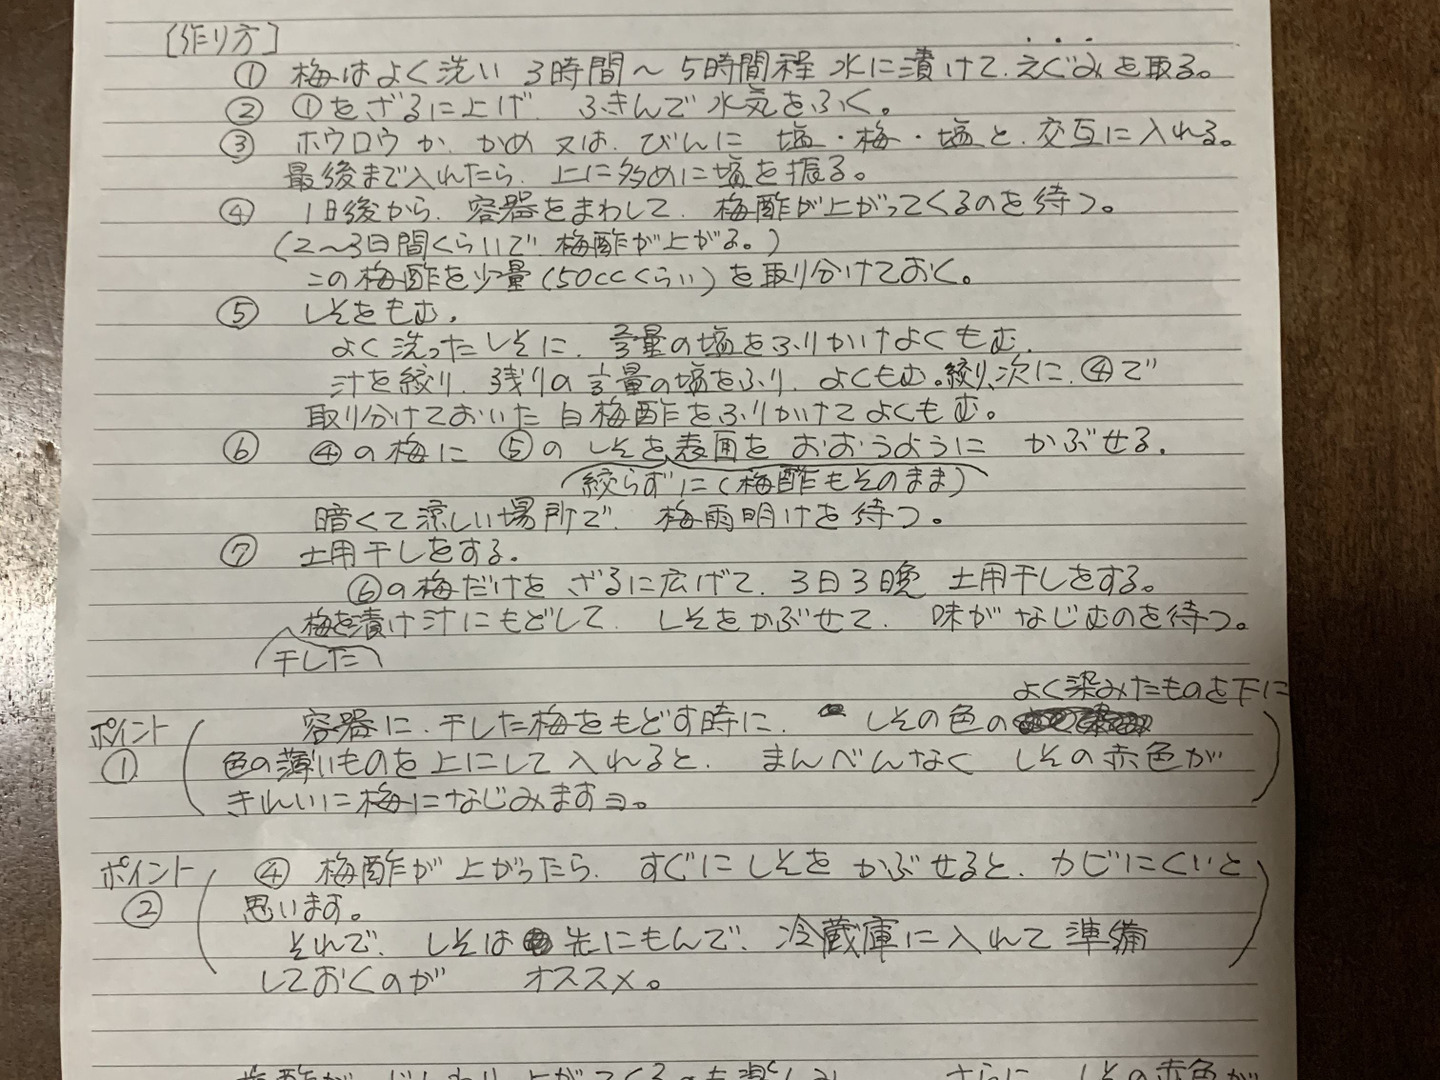 [作り方]
① 梅はよく洗い 3時間～5時間程 水に漬けて、えぐみを取る。
② ①をざるに上げ ふきんで水気をふく。
③ ホウロウか、かめ 又は、びんに 塩・梅・塩と、交互に入れる。
最後まで入れたら、上に多めに塩を振る。
④ 1日後から、容器をまわして、梅酢が上がってくるのを待つ。
(2～3日間くらいで 梅酢が上がる。)
この梅酢を少量(50ccくらい)を取り分けておく。
⑤ しそをもむ。
よく洗ったしそに、2/3量の塩をふりかけよくもむ、
汁を絞り、残りの1/3量の塩をふり、よくもむ。絞り、次に、④で
取り分けておいた 白梅酢をふりかけてよくもむ。
⑥ ④の梅に ⑤の しそを表面を おおうように かぶせる。
絞らずに(梅酢もそのまま)
暗くて涼しい場所で、梅雨明けを待つ。
⑦ 土用干しをする。
⑥の梅だけを ざるに広げて、3日3晩 土用干しをする。
梅を漬け汁にもどして、しそをかぶせて、味がなじむのを待つ。
干した
よく染みたものを下に
ポイント
① 容器に、干した梅をもどす時に、しその色の
色の薄いものを上にして入れると、まんべんなく しその赤色が
きれいに梅になじみますヨ。
ポイント
② ④ 梅酢が上がったら、すぐにしそを かぶせると、カビにくいと
思います。
それで、しそは 先にもんで、冷蔵庫に入れて準備
しておくのが オススメ。